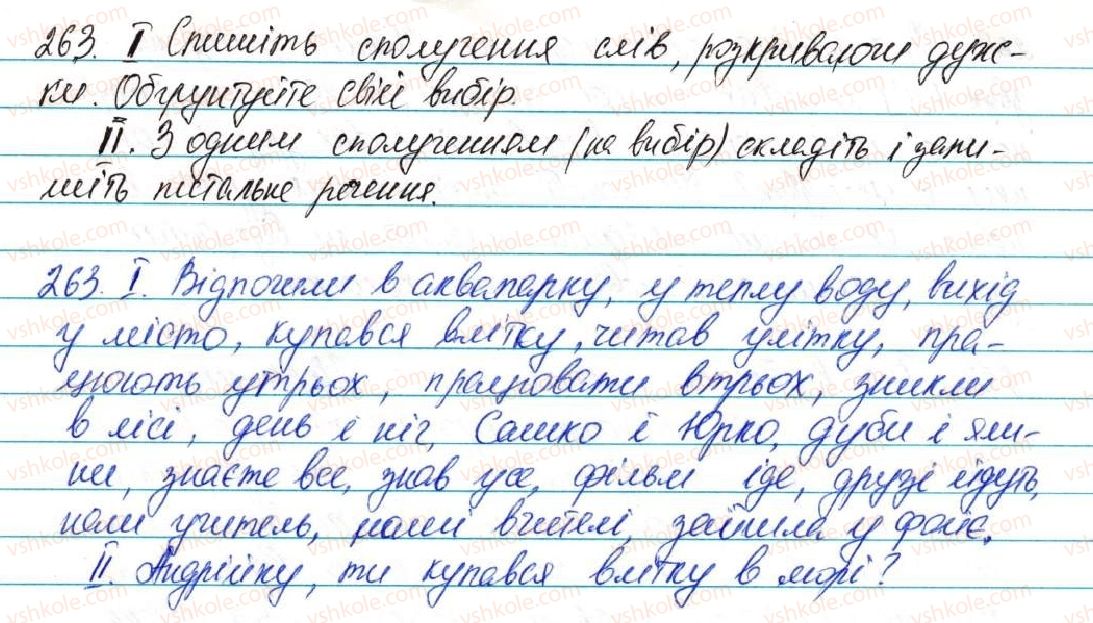 263. I Спишіть сполучення слів, розкриваючи дуж-
ки. Обґрунтуйте свій вибір.
II. З одним сполученням (на вибір) складіть і запи-
шіть питальне речення.
263. I. Відпочили в аквапарку, у теплу воду, вихід
у місто, купався влітку, читав улітку, пра-
цюють утрьох, працювати втрьох, зникли
в лісі, день і ніч, Сашко і Юрко, дуби і яли-
ни, знаєте все, знав усе, фільм іде, друзі йдуть,
наш учитель, наші вчителі, зайшла у фойє.
II. Андрійку, ти купався влітку в морі?